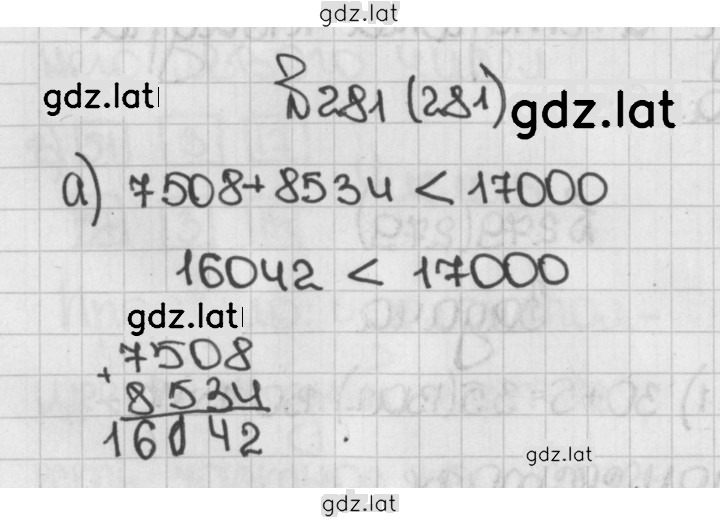 gdz.lat
gdz.lat
№281 (281) gdz.lat
а) 7508+8534 < 17000
16042 < 17000
gdz.lat
+ 7508
8534
16042
gdz.lat
gdz.lat